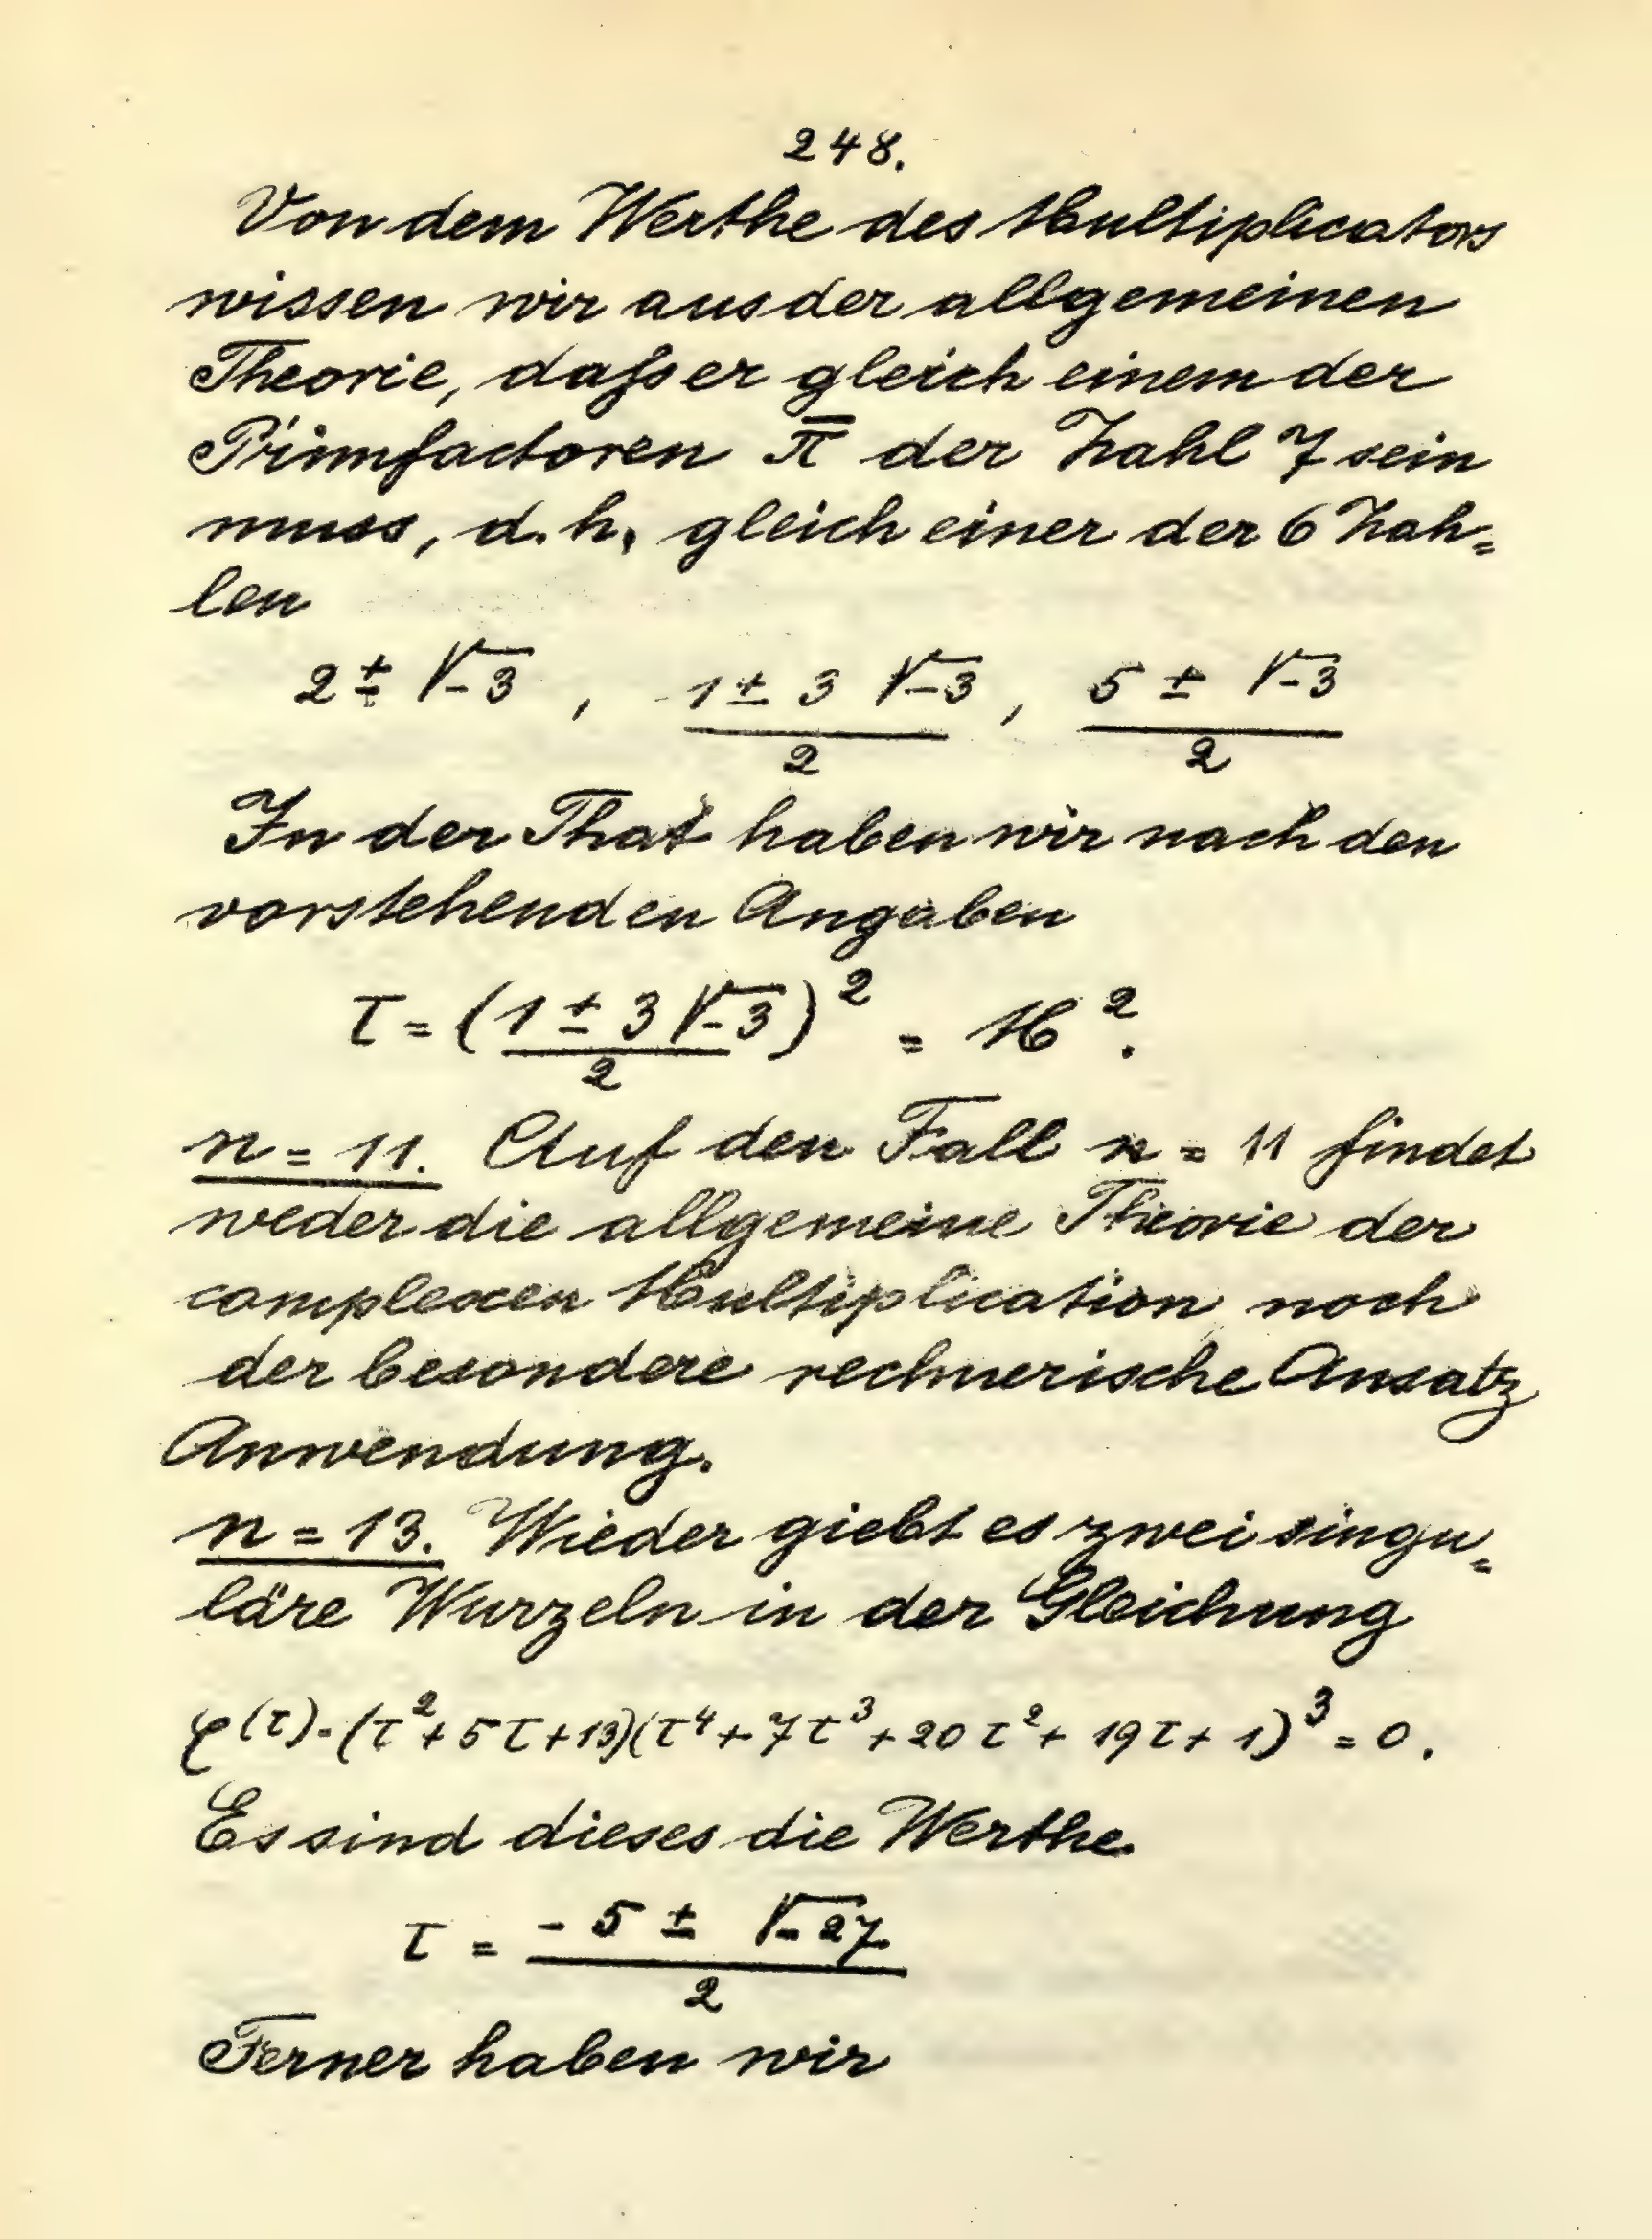 248.
Von dem Werthe des Multiplicators
wissen wir aus der allgemeinen
Theorie, daſs er gleich einem der
Primfactoren π̅ der Zahl 7 sein
muss, d. h. gleich einer der 6 Zah=
len
2 ± √-3 , (1 ± 3 √-3)/2 , (5 ± √-3)/2
In der That haben wir nach den
vorstehenden Angaben
τ = ((1 ± 3 √-3)/2)² = M².
n = 11. Auf den Fall n = 11 findet
weder die allgemeine Theorie der
complexen Multiplication noch
der besondere rechnerische Ansatz
Anwendung.
n = 13. Wieder giebt es zwei singu=
läre Wurzeln in der Gleichung
φ(τ) = (τ² + 5τ + 13)(τ⁴ + 7τ³ + 20τ² + 19τ + 1)³ = 0.
Es sind dieses die Werthe
τ = (-5 ± √-27)/2
Ferner haben wir